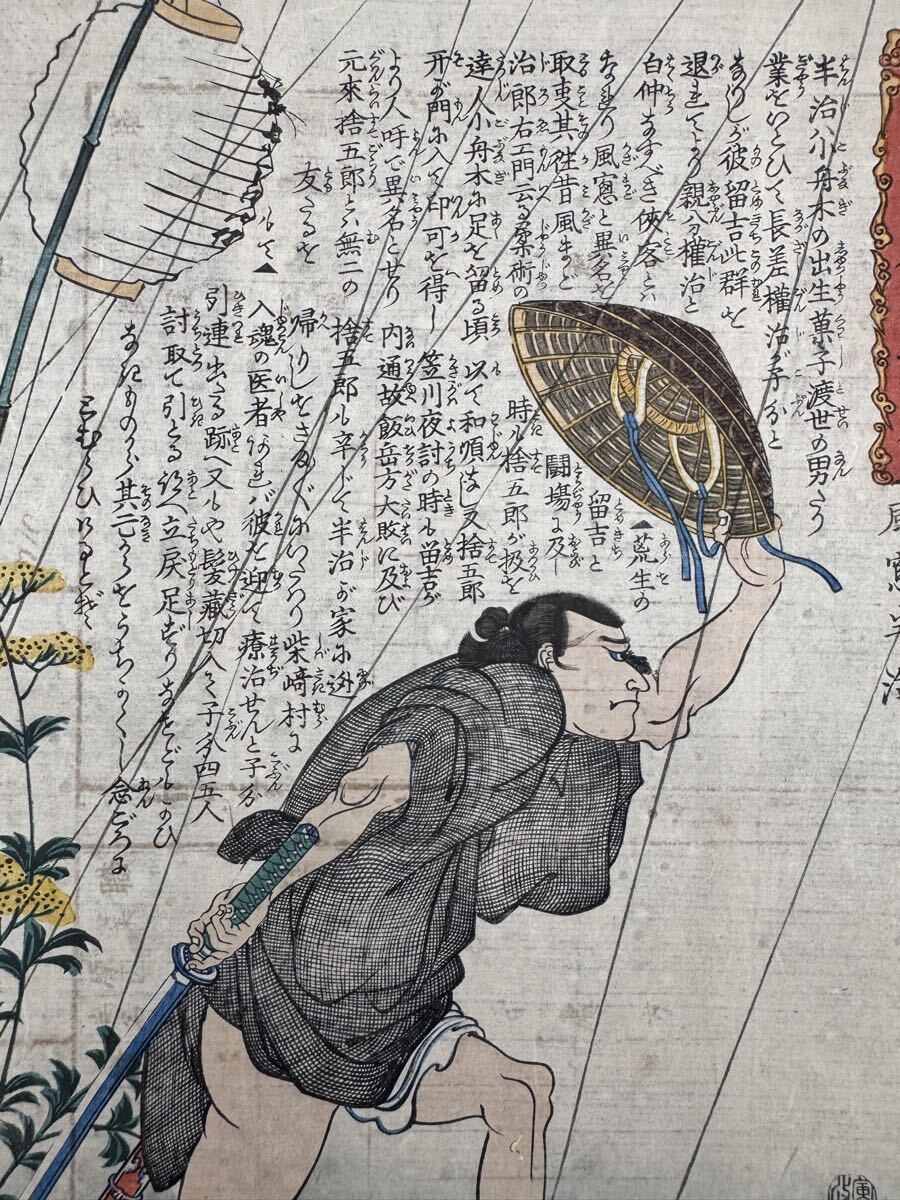 半治八小舟木の出生菓子渡世の男なり
業をいとひて長差權治が子ぶんと
なりしが彼留吉此群を
退れてより親分權治と
白仲なすべき俠客とハ
なれり風窓と異名を
取事其徃昔風まど
治郎右エ門云る柔術の
達人小舟木に足を留る頃
其門に入て印可を得し
より人呼で異名とせり
元來捨五郎とハ無二の
友たるを
もて▲
▲荒生の
留吉と
闘場に及し
時も捨五郎が扱を
以て和順は又捨五郎
笠川夜討の時も留吉が
内通故飯岳方大敗に及び
捨五郎も辛じて半治が家に
帰りしをさま〴〵にいたはり柴﨑村に
入魂の医者あれバ彼を迎て療治せんと子分
引連出たる跡へ又もや髪藏切入て子分四五人
討取て引とる処へ立戻足ずりなせど
なきものから其亡からをうちかくし念ごろに
とむらひけるとぞ
風窓半治